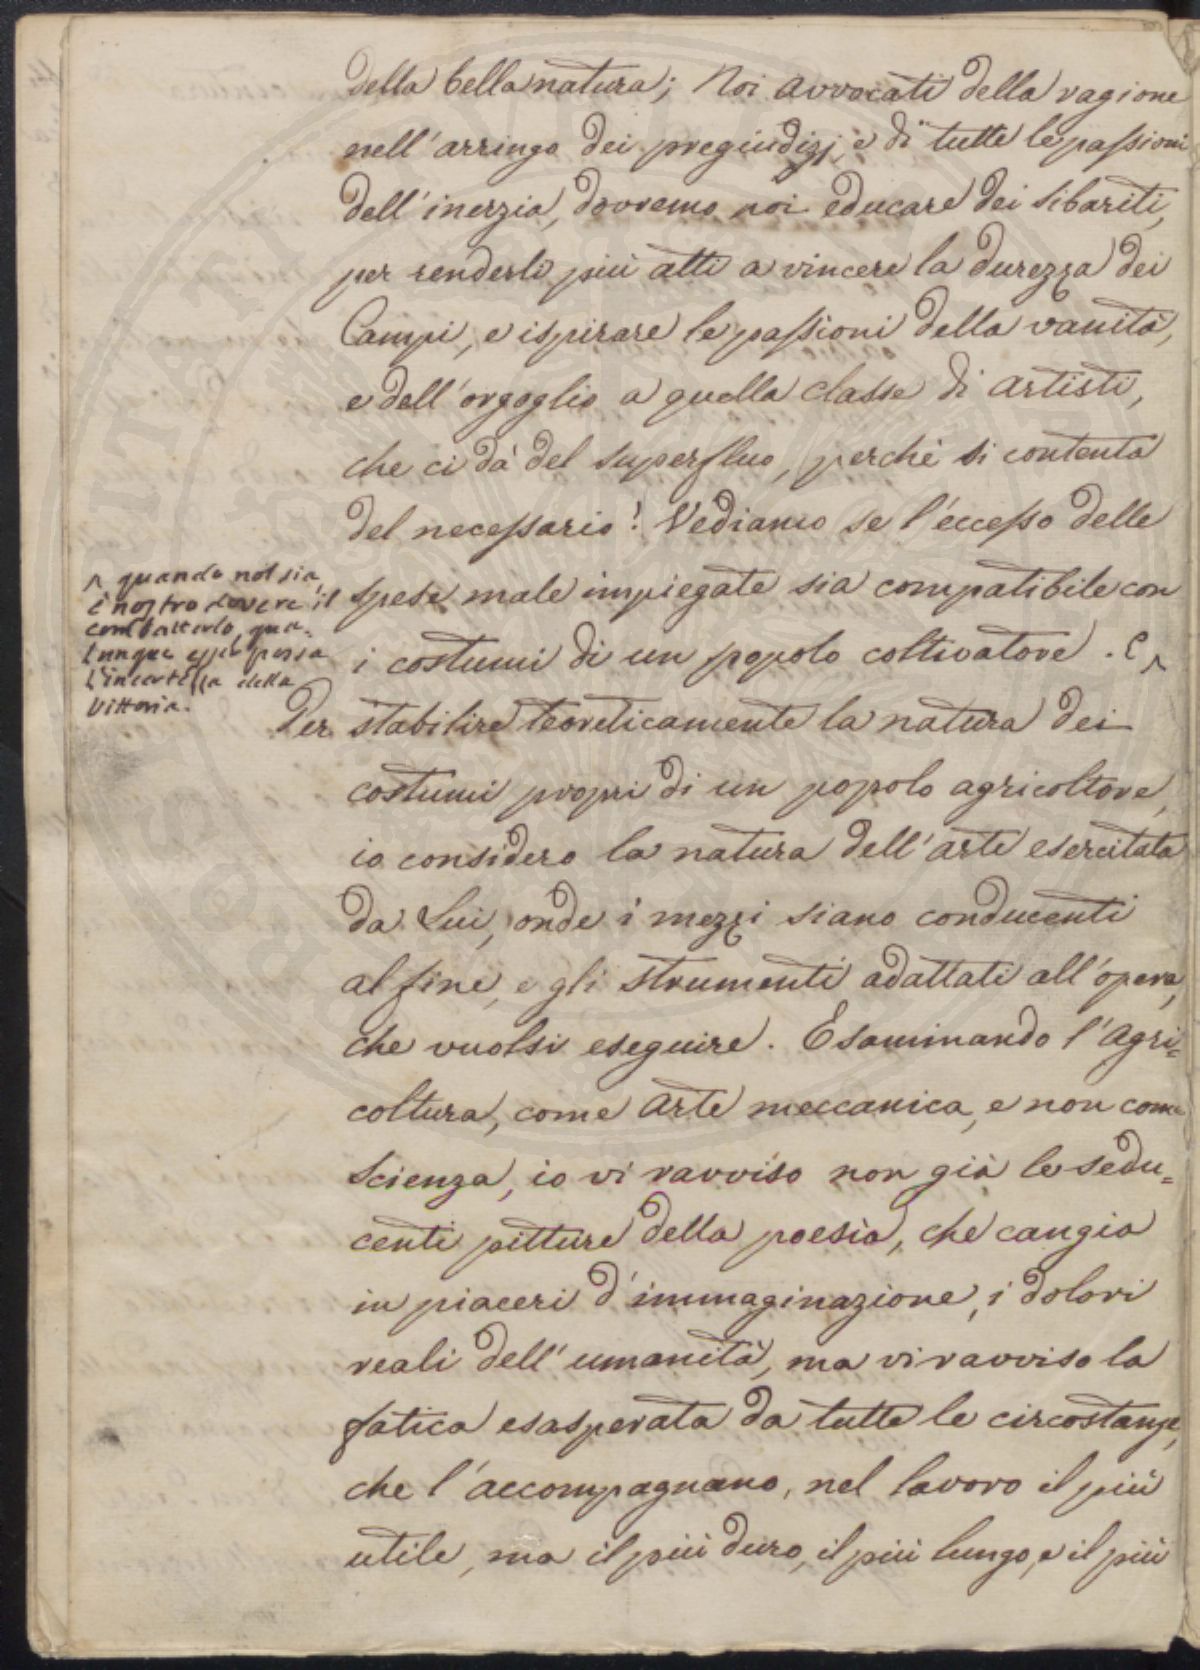 della bella natura; Noi avvocati della ragione
nell'arringo dei pregiudizj, e di tutte le passioni
dell'inerzia, dovremo noi educare dei Sibariti,
per renderli più atti a vincere la durezza dei
Campi, e ispirare le passioni della vanità,
e dell'orgoglio a quella classe di artisti,
che ci dà del superfluo, perchè si contenta
del necessario! Vediamo se l'eccesso delle
spese male impiegate sia compatibile con
i costumi di un popolo coltivatore. E ^
^ quando nol sia,
è nostro dovere il
combatterlo, qua-
lunque esser possa
l'incertezza della
Vittoria.
Per stabilire teoreticamente la natura dei
costumi propri di un popolo agricoltore,
io considero la natura dell'arte esercitata
da Lui, onde i mezzi siano conducenti
al fine, e gli strumenti adattati all'opera,
che vuolsi eseguire. Esaminando l'Agri=
coltura, come Arte meccanica, e non come
Scienza, io vi ravviso non già le sedu=
centi pitture della poesia, che cangia
in piaceri d'immaginazione, i dolori
reali dell'umanità, ma vi ravviso la
fatica esasperata da tutte le circostanze,
che l'accompagnano, nel lavoro il più
utile, ma il più duro, il più lungo, e il più